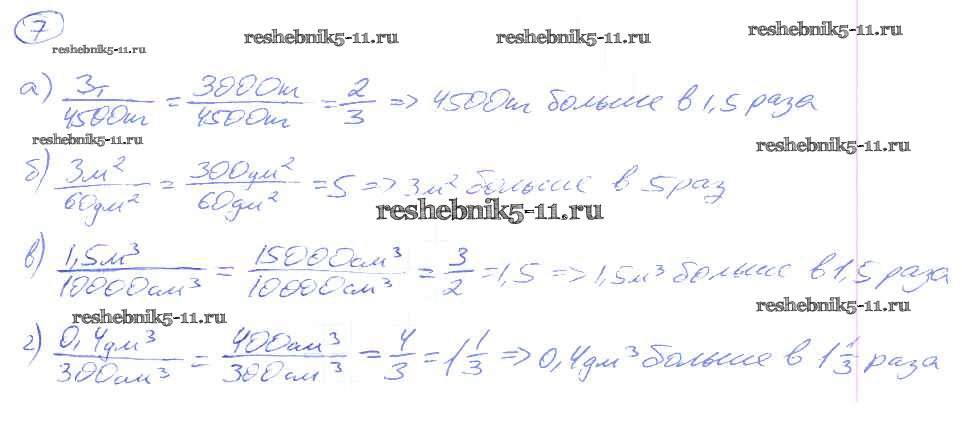 7
reshebnik5-11.ru reshebnik5-11.ru reshebnik5-11.ru reshebnik5-11.ru
а) 3т/4500кг = 3000кг/4500кг = 2/3 => 4500кг больше в 1,5 раза
reshebnik5-11.ru reshebnik5-11.ru
б) 3м²/60дм² = 300дм²/60дм² = 5 => 3м² больше в 5 раз
reshebnik5-11.ru
в) 1,5м³/10000см³ = 15000см³/10000см³ = 3/2 = 1,5 => 1,5м³ больше в 1,5 раза
reshebnik5-11.ru reshebnik5-11.ru
г) 0,4дм³/300см³ = 400см³/300см³ = 4/3 = 1 1/3 => 0,4дм³ больше в 1 1/3 раза